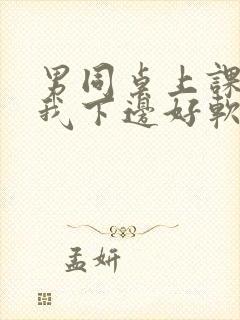 男同桌上課
我下邊好軟
孟妍